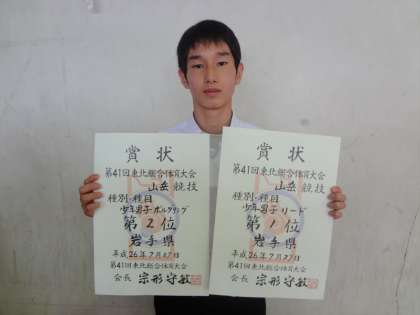 賞状
第41回東北総合体育大会
山岳競技
種別・種目
少年男子ボルダリング
第2位
岩手県
平成26年7月27日
第41回東北総合体育大会
会長 宗形守敏
賞状
第41回東北総合体育大会
山岳競技
種別・種目
少年男子リード
第1位
岩手県
平成26年7月27日
第41回東北総合体育大会
会長 宗形守敏